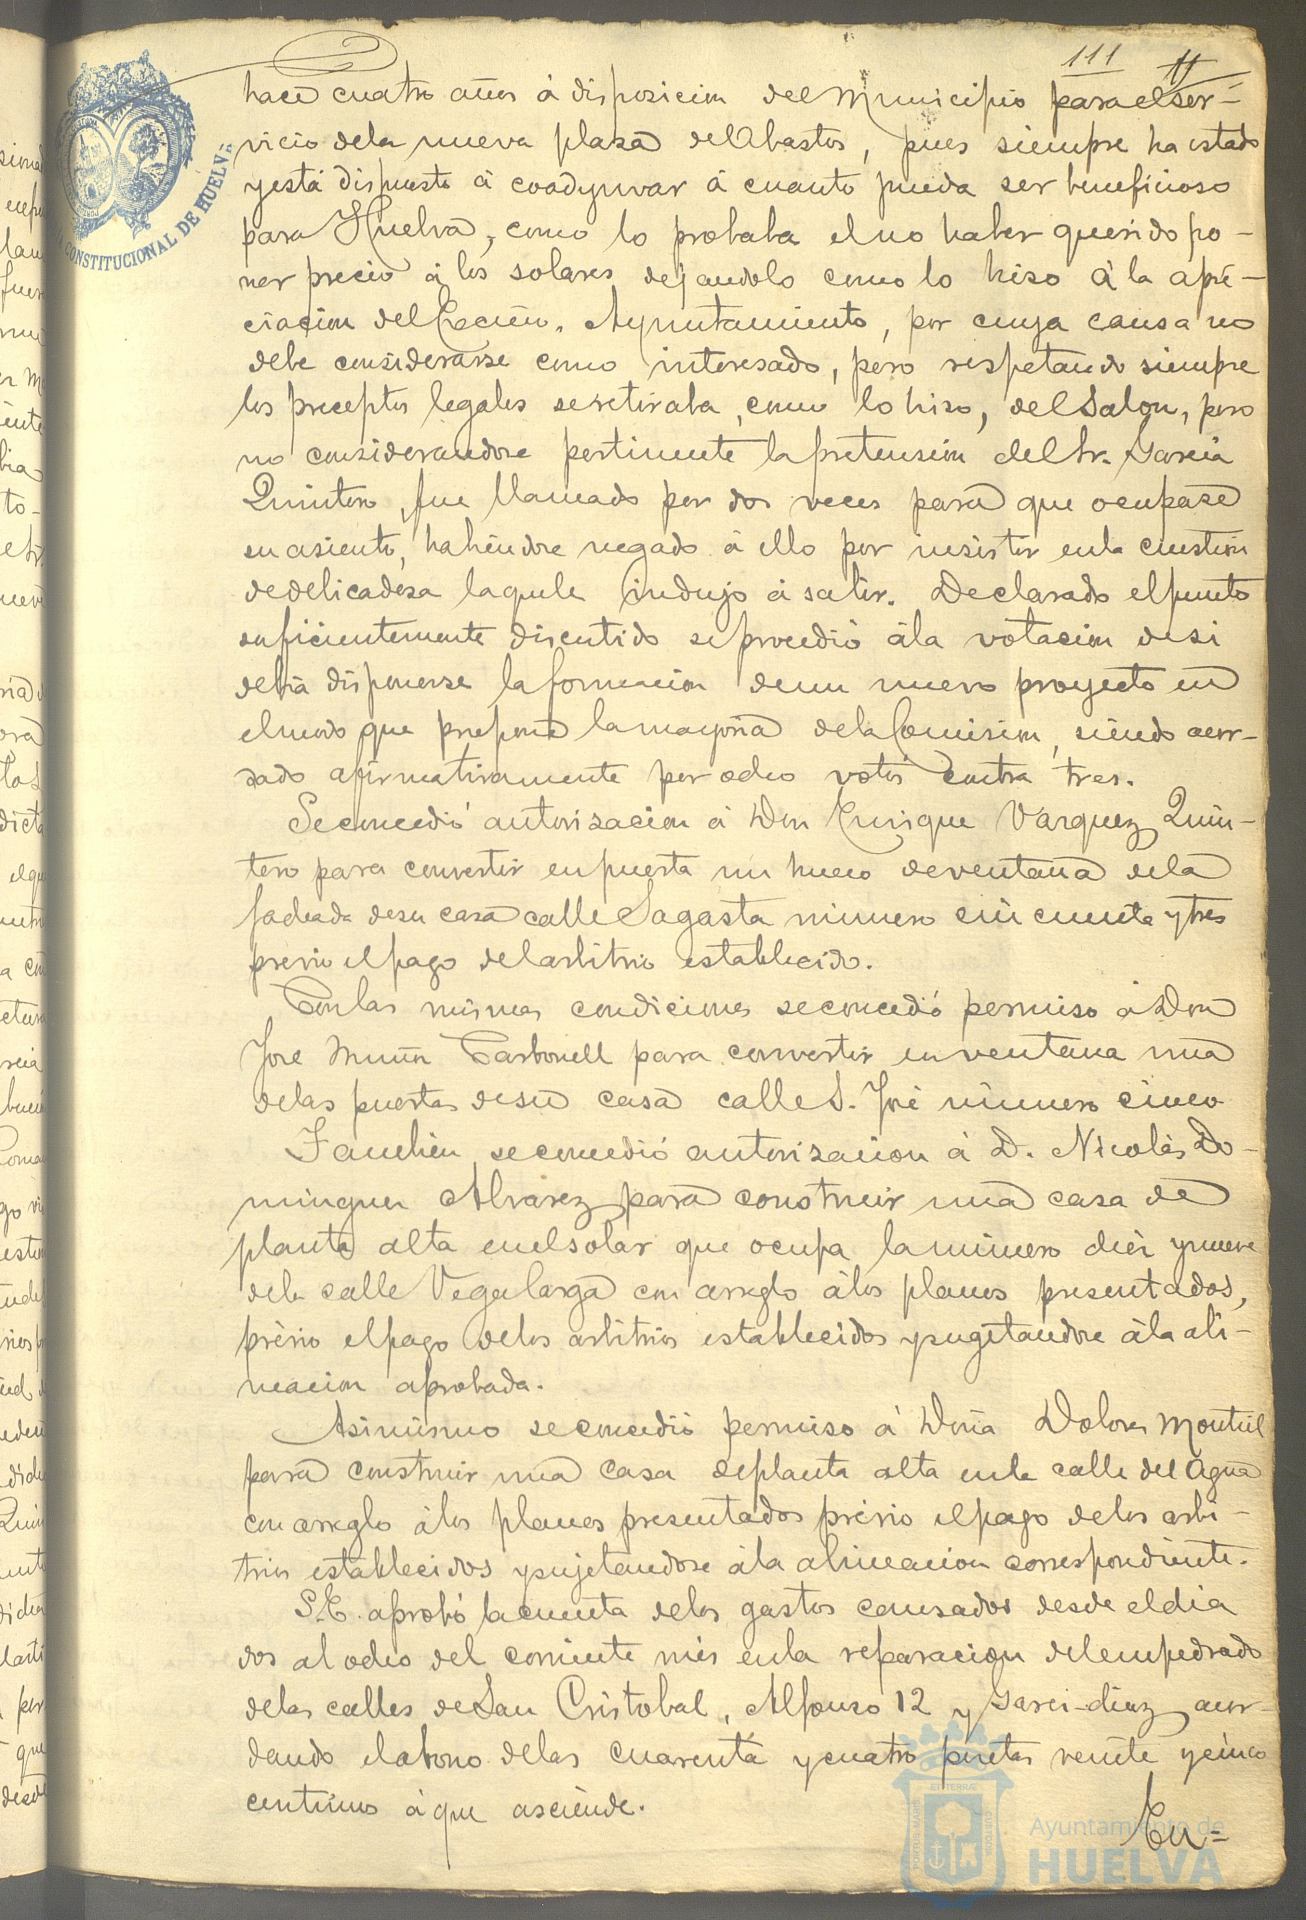 111 11
hace cuatro años á disposicion del Municipio para el ser-
vicio de la nueva plaza del Abastos, pues siempre ha estado
y está dispuesto á coadyuvar á cuanto pueda ser beneficioso
para Huelva, como lo probaba el no haber querido po-
ner precio á los solares dejandolo como lo hiso á la apre-
ciacion del Excmo. Ayuntamiento, por cuya causa no
debe considerarse como interesado, pero respetando siempre
los preceptos legales se retiraba, como lo hiso, del Salon, pero
no considerandose pertinente la pretension del Sr. Garcia
Quintero, fue llamado por dos veces para que ocupase
su asiento, habiendose negado á ello por insistir en la cuestion
de delicadesa la que le indujo á salir. Declarado el punto
suficientemente discutido se procedió á la votacion de si
debia disponerse la formacion de un nuevo proyecto en
el modo que propone la mayoria de la Comision, siendo acor-
dado afirmativamente por ocho votos contra tres.
Se concedió autorisacion á Don Enrique Vazquez Quin-
tero para convertir en puerta un hueco de ventana de la
fachada de su casa calle Sagasta número cincuenta y tres
previo el pago del arbitrio establecido.
Con las mismas condiciones se concedió permiso á Don
José Muñoz Carbonell para convertir en ventana una
de las puertas de su casa calle S. José número cinco
Tambien se concedió autorisacion á D. Nicolás Do-
minguez Alvarez para construir una casa de
planta alta en el solar que ocupa la número diez y nueve
de la calle Vega larga con arreglo á los planos presentados,
prévio el pago de los arbitrios establecidos y sugetandose á la ali-
neacion aprobada.
Asimismo se concedió permiso á Doña Dolores Montiel
para construir una casa de planta alta en la calle del Agua
con arreglo á los planos presentados prévio el pago de los arbi-
trios establecidos y sujetandose á la alineacion correspondiente.
S.E. aprobó la cuenta de los gastos causados desde el dia
dos al ocho del corriente mes en la reparacion del empedrado
de las calles de San Cristobal, Alfonso 12 y Garci-diaz acor-
dando el abono de las cuarenta y cuatro pesetas veinte y cinco
centimos á que asciende.
En=
CONSTITUCIONAL DE HUELVA
Ayuntamiento de
HUELVA